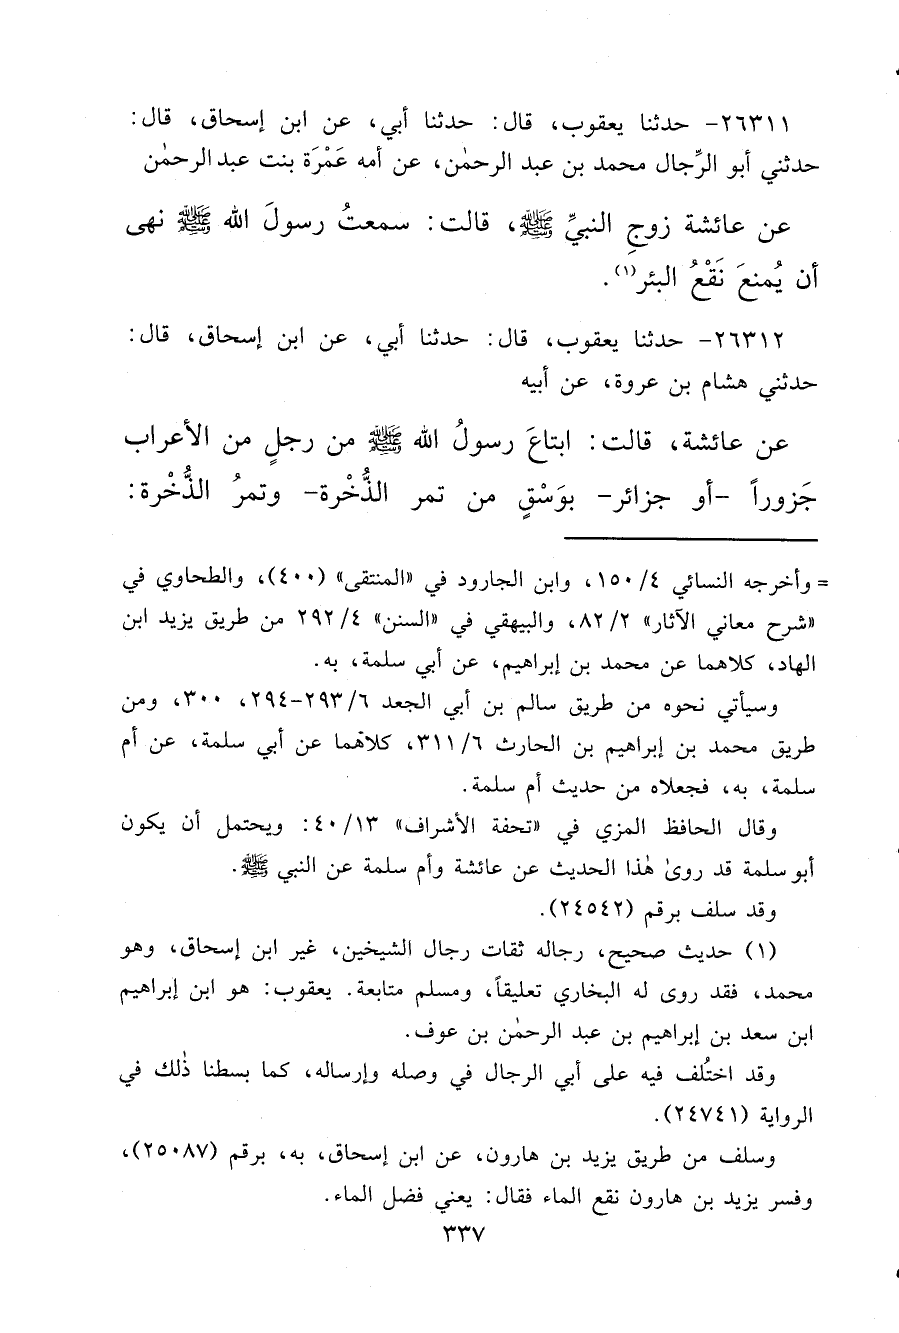 ٢٦٣١١- حدثنا يعقوب، قال: حدثنا أبي، عن ابن إسحاق، قال:
حدثني أبو الرِّجال محمد بن عبد الرحمٰن، عن أمه عَمْرَة بنت عبد الرحمٰن
عن عائشة زوجِ النبيِّ ﷺ، قالت: سمعتُ رسولَ الله ﷺ نهى
أن يُمنعَ نَقْعُ البئر(١).
٢٦٣١٢- حدثنا يعقوب، قال: حدثنا أبي، عن ابن إسحاق، قال:
حدثني هشام بن عروة، عن أبيه
عن عائشة، قالت: ابتاعَ رسولُ الله ﷺ من رجلٍ من الأعراب
جَزوراً -أو جزائر- بوَسْقٍ من تمر الذُّخْرة- وتمرُ الذُّخْرة:
= وأخرجه النسائي ٤/ ١٥٠، وابن الجارود في «المنتقى» (٤٠٠)، والطحاوي في
«شرح معاني الآثار» ٢/ ٨٢، والبيهقي في «السنن» ٤/ ٢٩٢ من طريق يزيد ابن
الهاد، كلاهما عن محمد بن إبراهيم، عن أبي سلمة، به.
وسيأتي نحوه من طريق سالم بن أبي الجعد ٦/ ٢٩٣-٢٩٤، ٣٠٠، ومن
طريق محمد بن إبراهيم بن الحارث ٦/ ٣١١، كلاهما عن أبي سلمة، عن أم
سلمة، به، فجعلاه من حديث أم سلمة.
وقال الحافظ المزي في «تحفة الأشراف» ١٣/ ٤٠: ويحتمل أن يكون
أبو سلمة قد روىٰ هٰذا الحديث عن عائشة وأم سلمة عن النبي ﷺ.
وقد سلف برقم (٢٤٥٤٢).
(١) حديث صحيح، رجاله ثقات رجال الشيخين، غير ابن إسحاق، وهو
محمد، فقد روى له البخاري تعليقاً، ومسلم متابعة. يعقوب: هو ابن إبراهيم
ابن سعد بن إبراهيم بن عبد الرحمٰن بن عوف.
وقد اختُلف فيه على أبي الرجال في وصله وإرساله، كما بسطنا ذٰلك في
الرواية (٢٤٧٤١).
وسلف من طريق يزيد بن هارون، عن ابن إسحاق، به، برقم (٢٥٠٨٧)،
وفسر يزيد بن هارون نقع الماء فقال: يعني فضل الماء.
٣٣٧